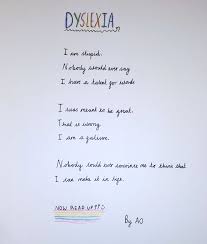 DYSLEXIA
I am stupid.
Nobody would ever say
I have a talent for words
I was meant to be great.
That is wrong.
I am a failure.
Nobody could ever convince me to think that
I can make it in life.
NOW READ UP
By AO